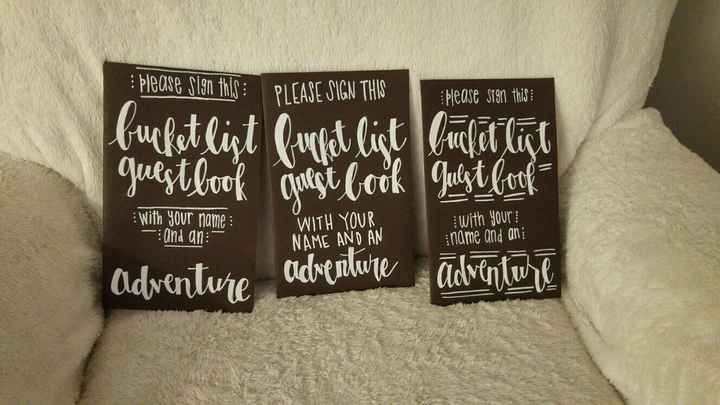 please sign this
bucket list
guest book
with your name
and an
adventure
PLEASE SIGN THIS
bucket list
guest book
WITH YOUR
NAME AND AN
adventure
please sign this
bucket list
guest book
with your
name and an
adventure